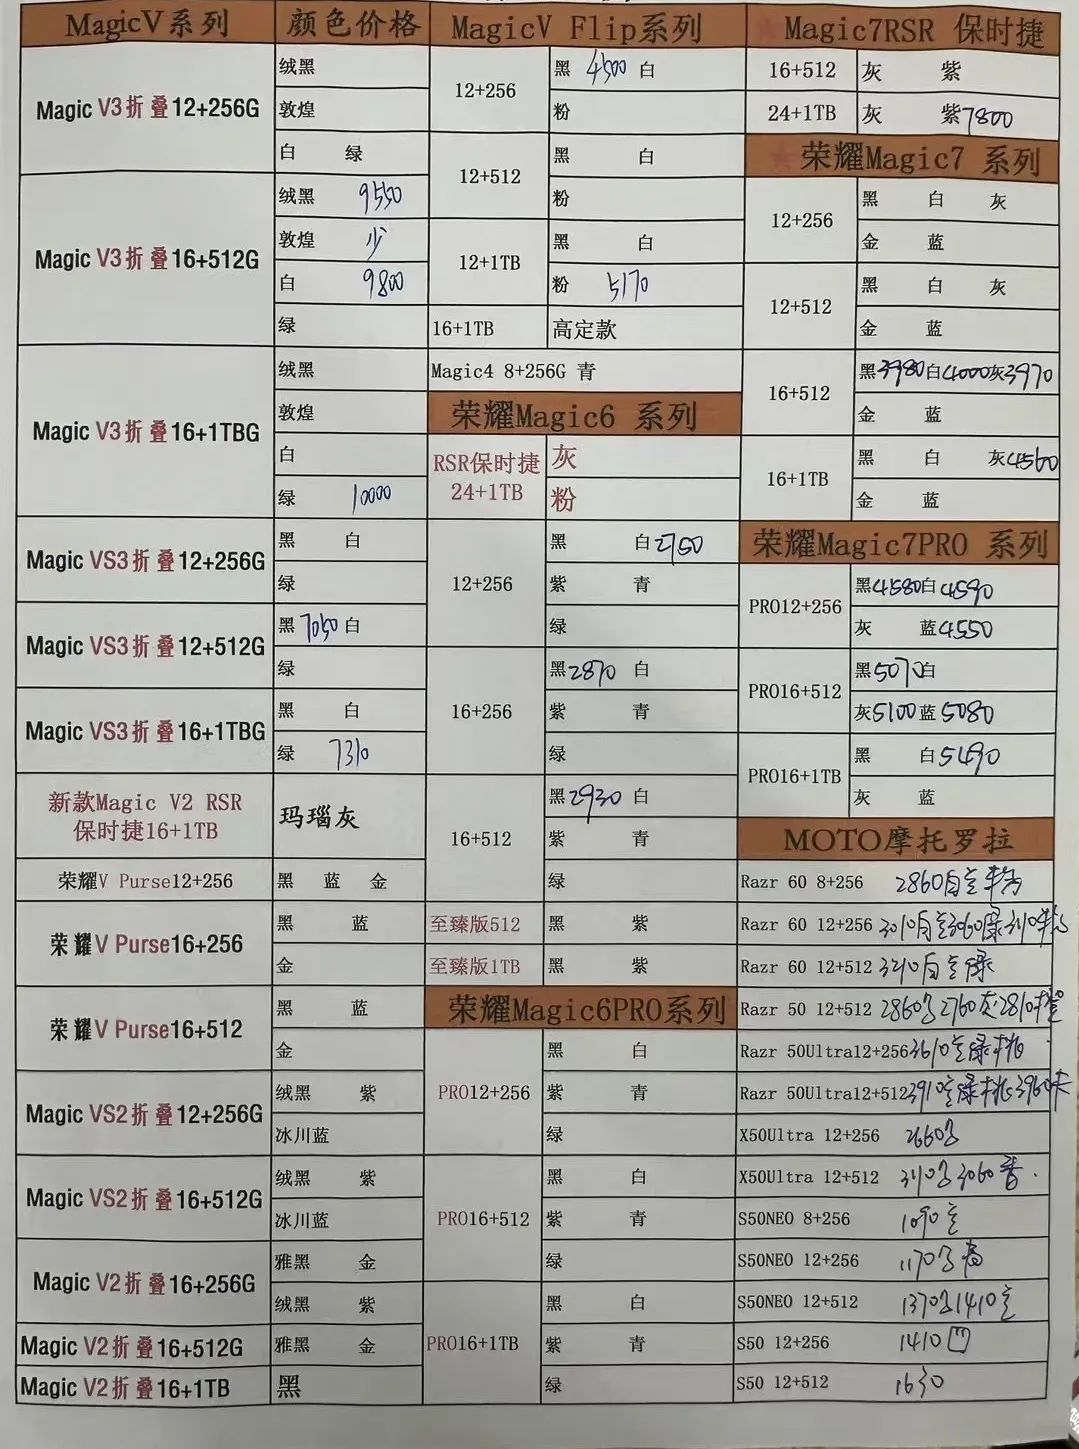 MagicV系列
颜色价格
Magic V3折叠12+256G
绒黑
敦煌
白 绿
Magic V3折叠16+512G
绒黑 9550
敦煌 少
白 9800
绿
Magic V3折叠16+1TBG
绒黑
敦煌
白
绿 10000
Magic VS3折叠12+256G
黑 白
绿
Magic VS3折叠12+512G
黑7050白
绿
Magic VS3折叠16+1TBG
黑 白
绿 7310
新款Magic V2 RSR
保时捷16+1TB
玛瑙灰
荣耀V Purse12+256
黑 蓝 金
荣耀V Purse16+256
黑 蓝
金
荣耀V Purse16+512
黑 蓝
金
Magic VS2折叠12+256G
绒黑 紫
冰川蓝
Magic VS2折叠16+512G
绒黑 紫
冰川蓝
Magic V2折叠16+256G
雅黑 金
绒黑 紫
Magic V2折叠16+512G
雅黑 金
Magic V2折叠16+1TB
黑
MagicV Flip系列
12+256
黑 4500 白
粉
12+512
黑 白
粉
12+1TB
黑 白
粉 5170
16+1TB
高定款
Magic4 8+256G 青
荣耀Magic6 系列
RSR保时捷
24+1TB
灰
粉
12+256
黑 白2750
紫 青
绿
16+256
黑2870 白
紫 青
绿
16+512
黑2930 白
紫 青
绿
至臻版512
黑 紫
至臻版1TB
黑 紫
荣耀Magic6PRO系列
PRO12+256
黑 白
紫 青
绿
PRO16+512
黑 白
紫 青
绿
PRO16+1TB
黑 白
紫 青
绿
★Magic7RSR 保时捷
16+512
灰 紫
24+1TB
灰 紫7800
★荣耀Magic7 系列
12+256
黑 白 灰
金 蓝
12+512
黑 白 灰
金 蓝
16+512
黑3980白4000灰3970
金 蓝
16+1TB
黑 白 灰4560
金 蓝
荣耀Magic7PRO 系列
PRO12+256
黑4580白4590
灰 蓝4550
PRO16+512
黑5070白
灰5100蓝5080
PRO16+1TB
黑 白5490
灰 蓝
MOTO摩托罗拉
Razr 60 8+256 2860
Razr 60 12+256
Razr 60 12+512 3210
Razr 50 12+512 2860 2760灰2810
Razr 50Ultra12+256 3610
Razr 50Ultra12+512 3910 3960
X50Ultra 12+256 2660
X50Ultra 12+512 3060
S50NEO 8+256 1090
S50NEO 12+256 1170
S50NEO 12+512 1370 1410
S50 12+256 1410
S50 12+512 1630